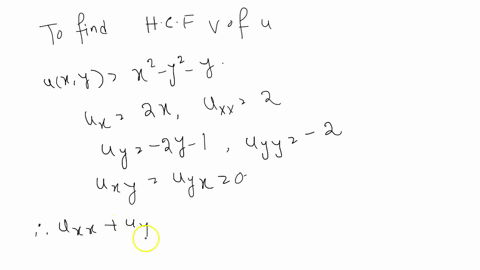 To find H.C.F V of u
u(x,y) = x² - y² - y.
uₓ = 2x, uₓₓ = 2
u_y = -2y-1, u_yy = -2
u_xy = u_yx = 0
∴ u_xx + u_y